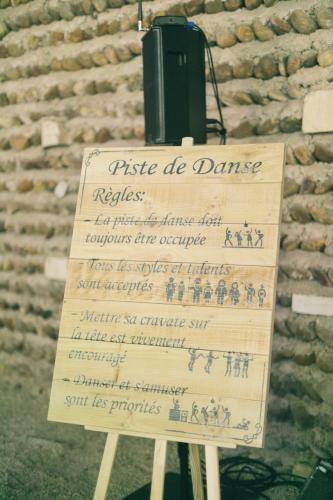 Piste de Danse
Règles:
- La piste de danse doit
toujours être occupée
- Tous les styles et talents
sont acceptés
- Mettre sa cravate sur
la tête est vivement
encouragé
- Danser et s'amuser
sont les priorités